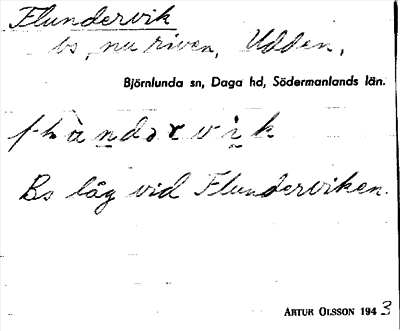 Flundervik
bs, nu riven, Udden,
Björnlunda sn, Daga hd, Södermanlands län.
Bs låg vid Flunderviken.
ARTUR OLSSON 1943